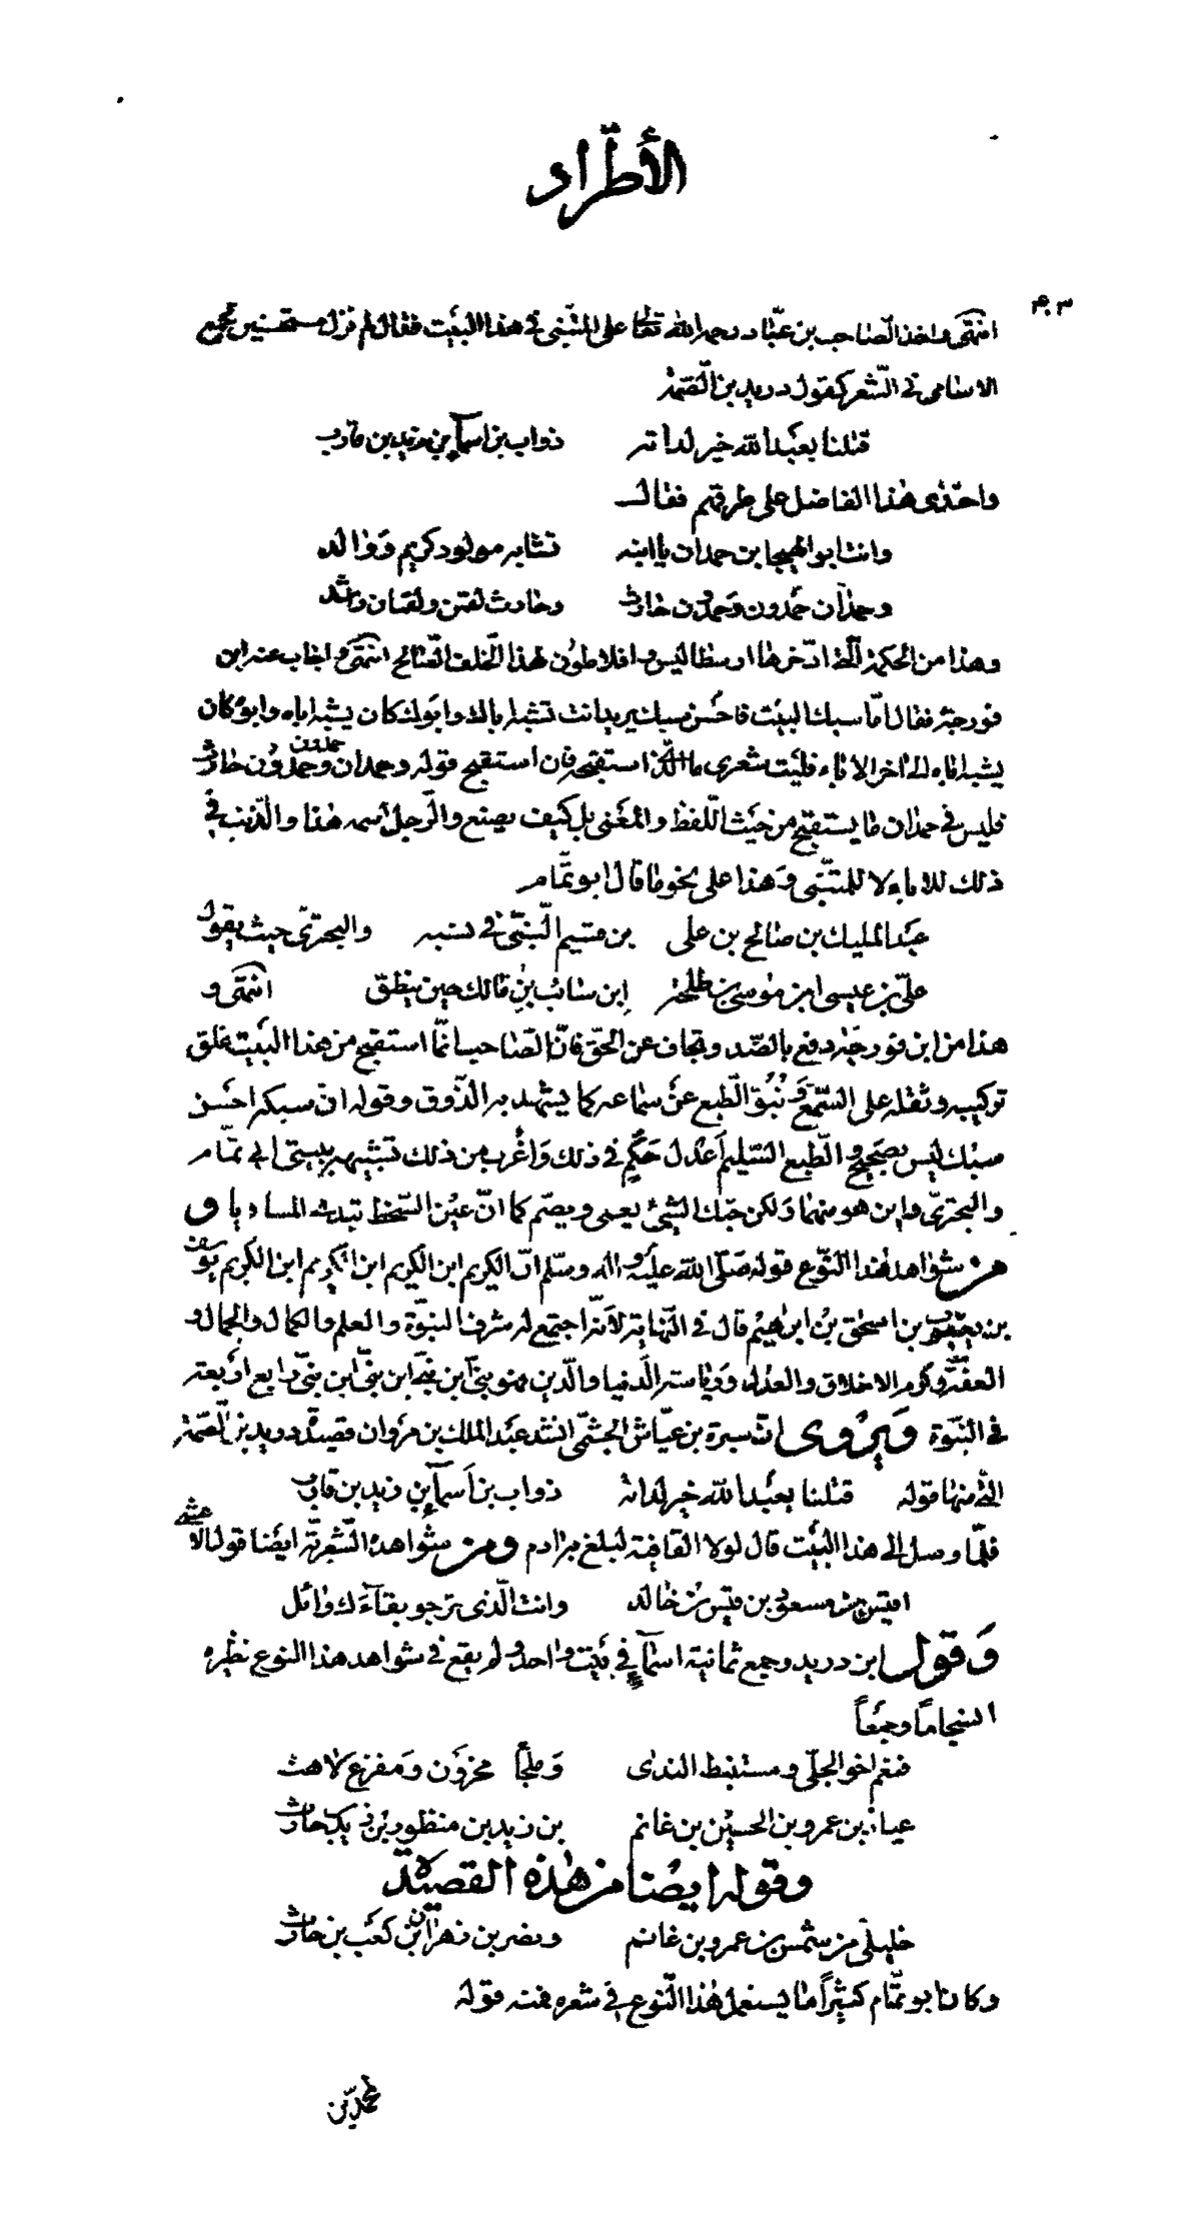 الأطراد
٣٠٣
انتهى واخذ الصاحب بن عبّاد رحمه الله تعالى على المتنبّى فى هذا البيت فقال لم نزل مستحسنين تجمع
الاسامى فى الشعر كقول دريد بن الصّمّة
قتلنا بعبد الله خير لداته ذواب بن اسمآء بن زيد بن قارب
واحتذى هذا الفاضل على طرقهم فقال
وانت ابو الهيجا بن حمدان يا ابنه تشابه مولود كريم ووالد
وحمدان حمدون وحمدون حارث وحارث لقمن ولقمان راشد
وهذا من الحكمة الّتى ادّخرها ارسطاليس وافلاطون لهذا الخلف الصّالح انتهى واجاب عنه ابن
فورجة فقال امّا سبك البيت فاحسن سبك يريد انت تشبه اباك وابوك كان يشبه اباه وابوه كان
يشبه اباه الى اخر الاباء فليت شعرى ما الّذى استقبحه فان استقبح قوله وحمدان حمدون وحمدون حارث
فليس فى حمدان ما يستقبح من حيث اللّفظ والمعنى بل كيف يصنع والرّجل اسمه هذا والذّنب فى
ذلك للاباء لا للمتنبّى وهذا على نحو ما قال ابو تمّام
عبد المليك بن صالح بن على بن قسيم النّبىّ فى نسبه والبحترىّ حيث يقول
علىّ بن عيسى ابن موسى بن طلحة ابن سائب بن مالك حين ينطق انتهى و
هذا من ابن فورجة دفع بالصّدر وتجاف عن الحقّ فانّ الصّاحب انّما استقبح من هذا البيت غلق
تركيبه وثقله على السّمع ونبوّ الطّبع عن سماعه كما يشهد به الذّوق وقوله انّ سبكه احسن
سبك ليس بصحيح والطّبع السّليم اعدل حكم فى ذلك واغرب من ذلك تشبيهه ببيتى ابى تمّام
والبحترىّ واين هو منهما ولكن حبّك الشّىء يعمى ويصمّ كما انّ عين السّخط تبدى المساويا و
من شواهد هذا النّوع قوله صلّى الله عليه واله وسلّم انّ الكريم ابن الكريم ابن الكريم ابن الكريم يوسف
بن يعقوب بن اسحق بن ابرهيم قال فى النّهاية لانّه اجتمع له شرف النبوّة والعلم والكمال والجمال و
العفّة وكرم الاخلاق والعدل ورياسة الدّنيا والدّين فهو نبىّ ابن نبىّ ابن نبىّ ابن نبىّ رابع اربعة
فى النّبوّة ويروى انّ سبرة بن عيّاش الجشمّى انشد عبد الملك بن مروان قصيدة دريد بن الصّمّة
الّتى منها قوله قتلنا بعبد الله خير لداته ذواب بن اسمآء بن زيد بن قارب
فلمّا وصل الى هذا البيت قال لولا القافية لبلغ به ادم ومن شواهده الشّعريّة ايضا قول الاعشى
اقيس بن مسعود بن قيس بن خالد وانت الّذى ترجو بقآءك وائل
وقول ابن دريد وجمع ثمانية اسمآء فى بيت واحد ولم يقع فى شواهد هذا النوع نظيره
انسجاما وجمعاً
فنعم اخو الجلّى ومستنبط الندى وملجأ محزون ومفزع لاهث
عياذ بن عمرو بن الحسين بن غانم بن زيد بن منظور بن زيد بن حارث
وقوله ايضا من هذه القصيدة
خليلىّ من شمس بن عمرو بن غانم ونصر بن زهران بن كعب بن حارث
وكان ابو تمّام كثيراً ما يستعمل هذا النّوع فى شعره فمنه قوله
محمد بن